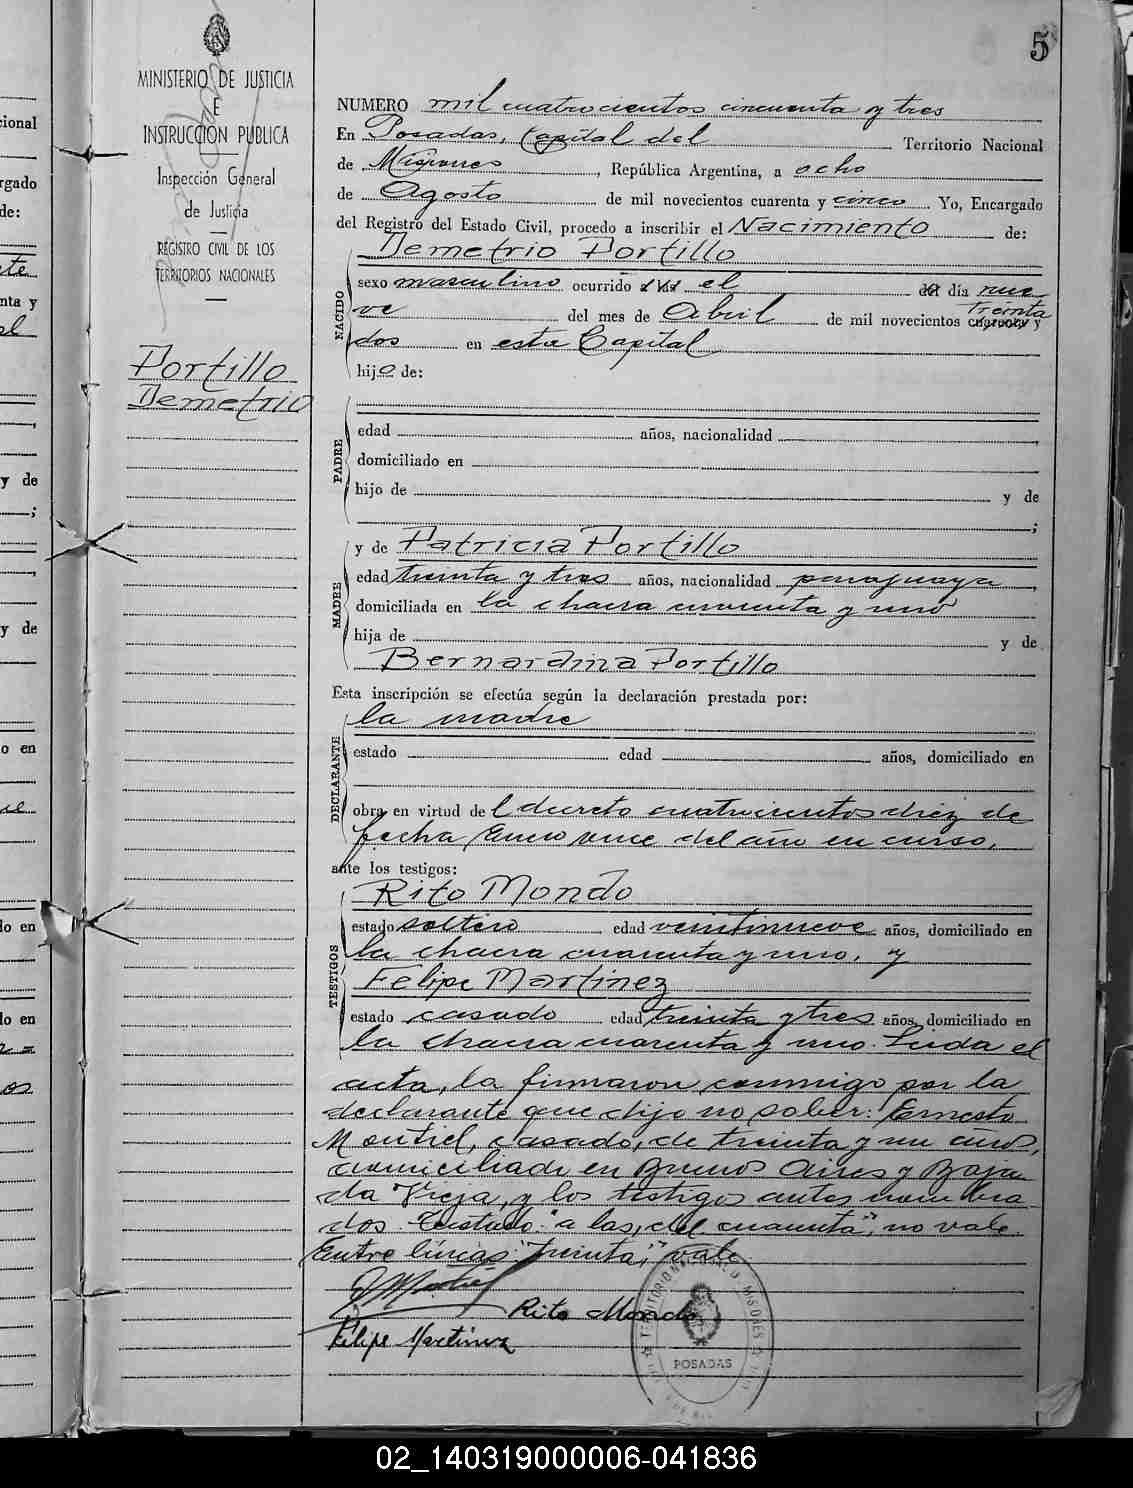 5
MINISTERIO DE JUSTICIA
E
INSTRUCCION PUBLICA
Inspección General
de Justicia
REGISTRO CIVIL DE LOS
TERRITORIOS NACIONALES
Portillo
Demetrio
NUMERO mil cuatrocientos cincuenta y tres
En Posadas, Capital del Territorio Nacional
de Misiones, República Argentina, a ocho
de Agosto de mil novecientos cuarenta y cinco Yo, Encargado
del Registro del Estado Civil, procedo a inscribir el Nacimiento de:
Demetrio Portillo
NACIDO
sexo masculino ocurrido a las el del día nue
ve del mes de Abril de mil novecientos cuarenta y treinta
dos en esta Capital
hijo de:
PADRE
edad años, nacionalidad
domiciliado en
hijo de y de
;
MADRE
y de Patricia Portillo
edad treinta y tres años, nacionalidad paraguaya,
domiciliada en la chacra cuarenta y uno
hija de y de
Bernardina Portillo
Esta inscripción se efectúa según la declaración prestada por:
DECLARANTE
la madre
estado edad años, domiciliado en
obra en virtud del decreto cuatrocientos diez de
fecha Enero once del año en curso,
ante los testigos:
TESTIGOS
Rito Mondo
estado soltero edad veintinueve años, domiciliado en
la chacra cuarenta y uno, y
Felipe Martinez
estado casado edad treinta y tres años, domiciliado en
la chacra cuarenta y uno. Leida el
acta, la firmaron conmigo por la
declarante que dijo no saber: Ernesto
Montiel, casado, de treinta y un años,
domiciliado en Buenos Aires y Baja
da Vieja, y los testigos antes nombra
dos. Testado: "a las, del cuarenta", no vale.
Entre líneas: "treinta", vale
Rito Mondo
Felipe Martinez
POSADAS
02_140319000006-041836